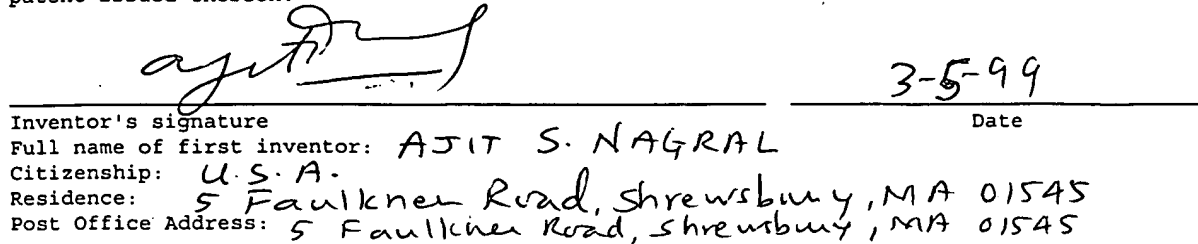 patent issued thereon.
ajit
3-5-99
Inventor's signature Date
Full name of first inventor: AJIT S. NAGRAL
Citizenship: U.S.A.
Residence: 5 Faulkner Road, Shrewsbury, MA 01545
Post Office Address: 5 Faulkner Road, Shrewsbury, MA 01545